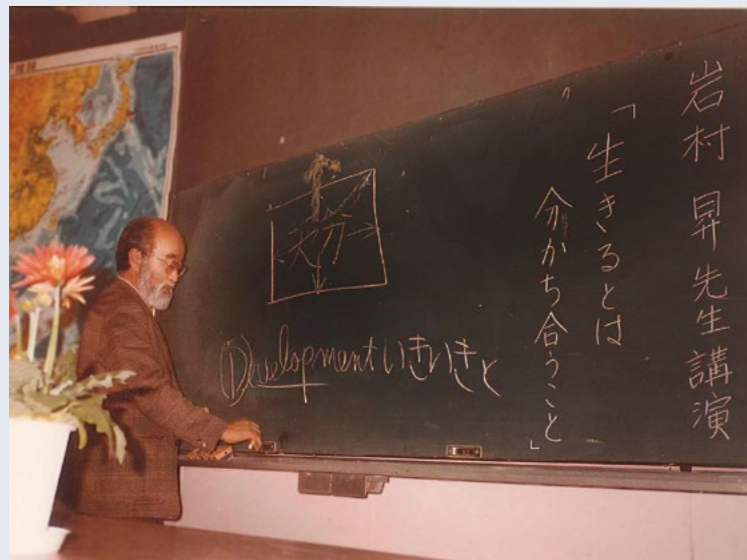 岩村 昇先生講演
「生きるとは
分かち合うこと」
天分
Developmentいきいきと